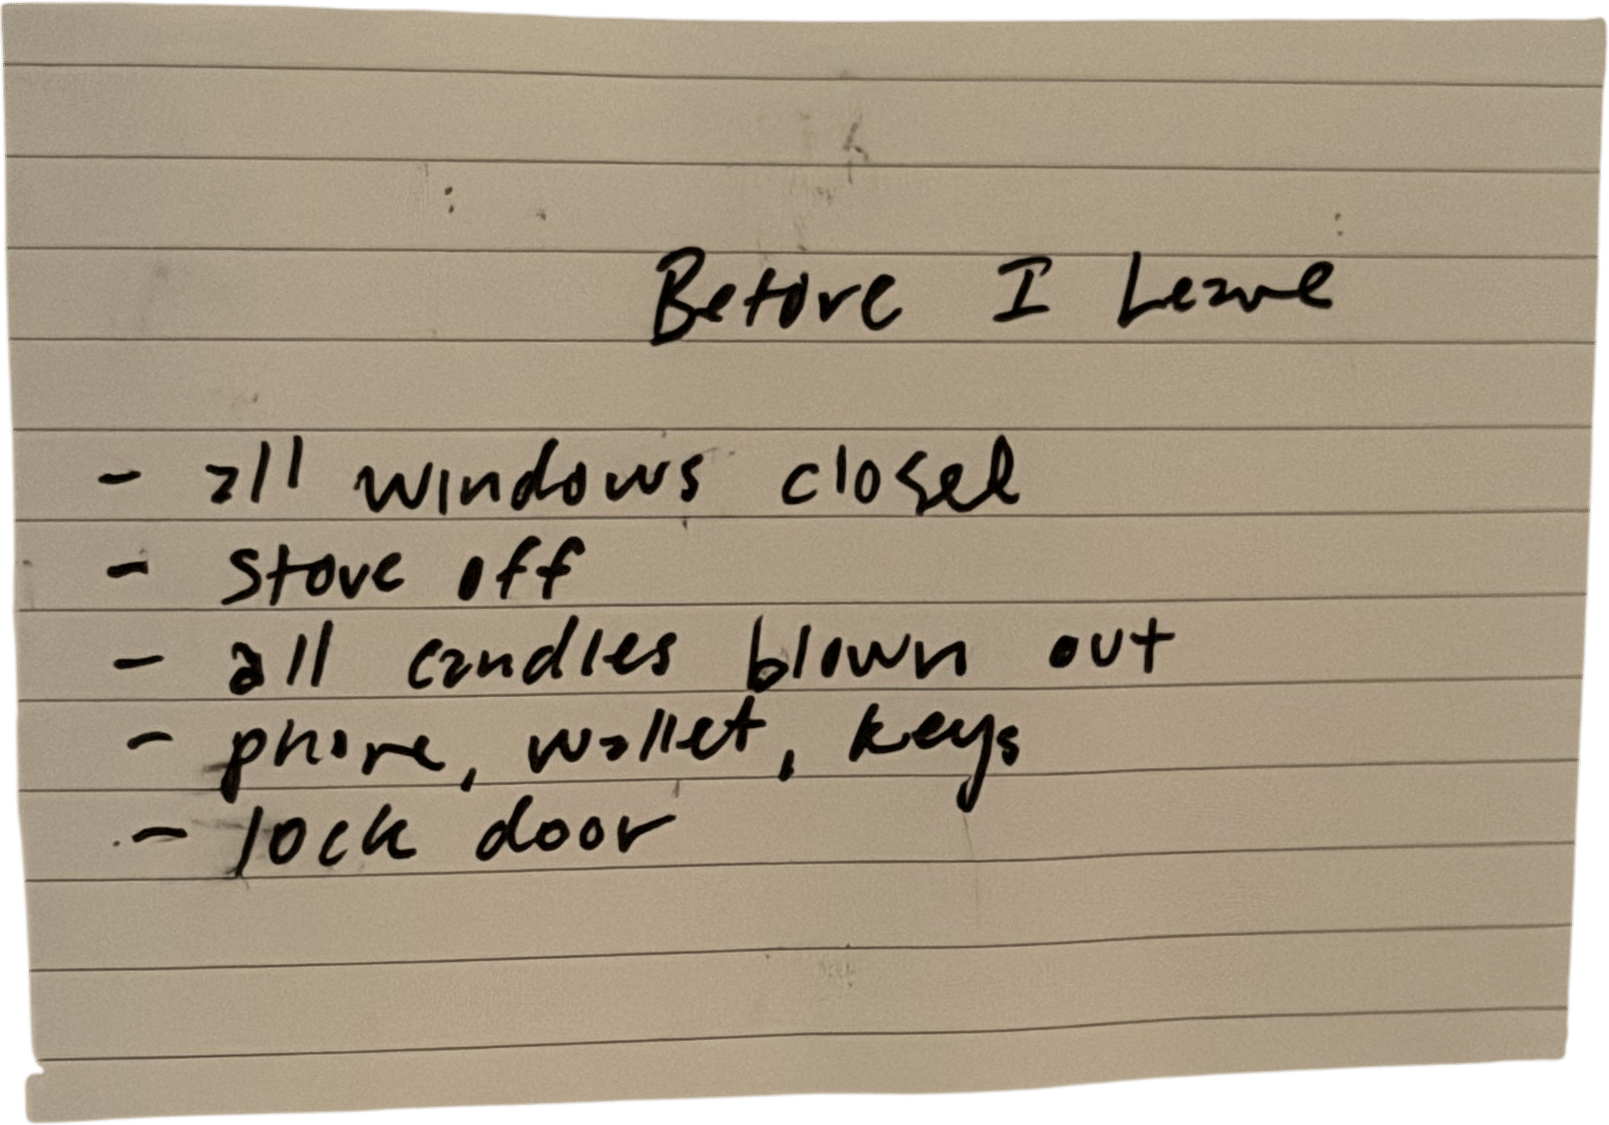 Before I Leave
- all windows closed
- stove off
- all candles blown out
- phone, wallet, keys
- lock door